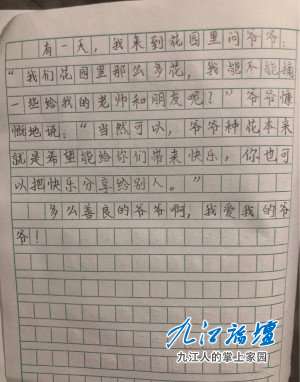 有一天，我来到花园里问爷爷：
“我们花园里那么多花，我能不能摘
一些给我的老师和朋友呢？”爷爷慷
慨地说：“当然可以，爷爷种花本来
就是希望能给你们带来快乐，你也可
以把快乐分享给别人。”
多么善良的爷爷啊，我爱我的爷
爷！
九江论坛
九江人的掌上家园